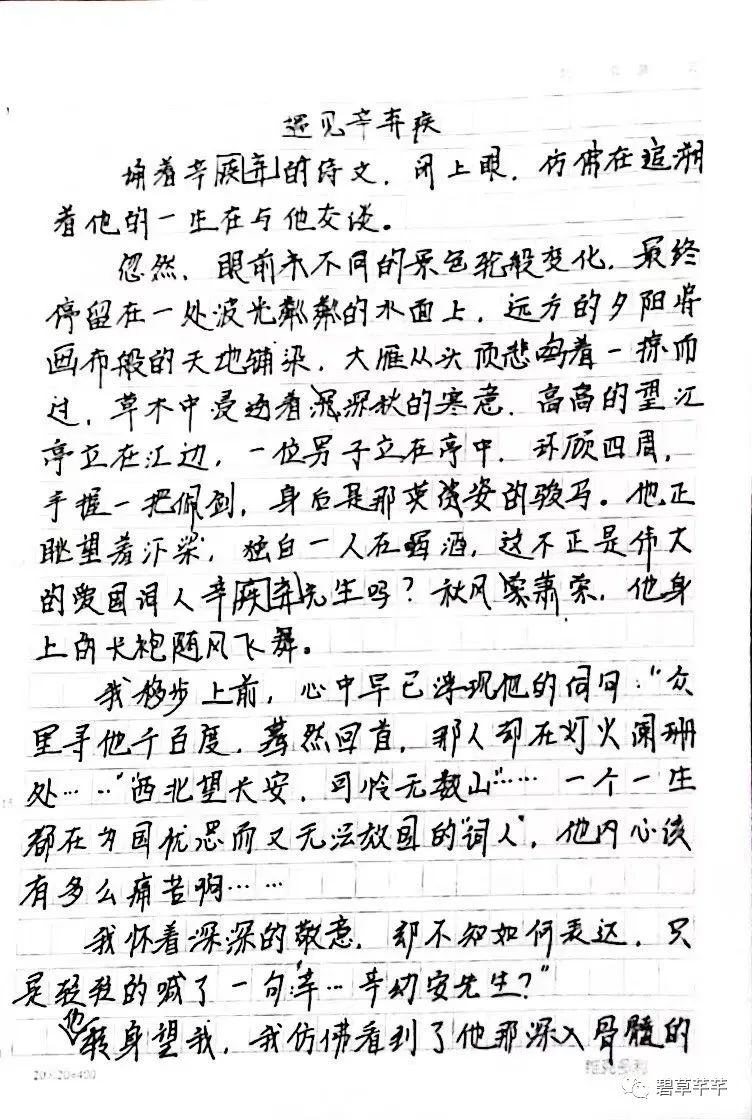 遇见辛弃疾
诵着辛疾弃的诗文，闭上眼，仿佛在追溯
着他的一生在与他交谈。
忽然，眼前未不同的景色轮般变化，最终
停留在一处波光粼粼的水面上，远方的夕阳将
画布般的天地铺染，大雁从头顶悲鸣着一掠而
过，草木中浸透着深秋的寒意，高高的望江
亭立在江边，一位男子立在亭中，环顾四周，
手握一把佩剑，身后是那英姿的骏马。他正
眺望着汴梁，独自一人在喝酒，这不正是伟大
的爱国词人辛疾弃先生吗？秋风萧索，他身
上的长袍随风飞舞。
我移步上前，心中早已浮现他的词句："众
里寻他千百度，蓦然回首，那人却在灯火阑珊
处……""西北望长安，可怜无数山"……一个一生
都在为国忧思而又无法放国的"词人"，他内心该
有多么痛苦啊……
我怀着深深的敬意，却不知如何表达，只
是轻轻的喊了一句"辛…辛幼安先生？"
他转身望我，我仿佛看到了他那深入骨髓的
20×20=400
碧草芊芊